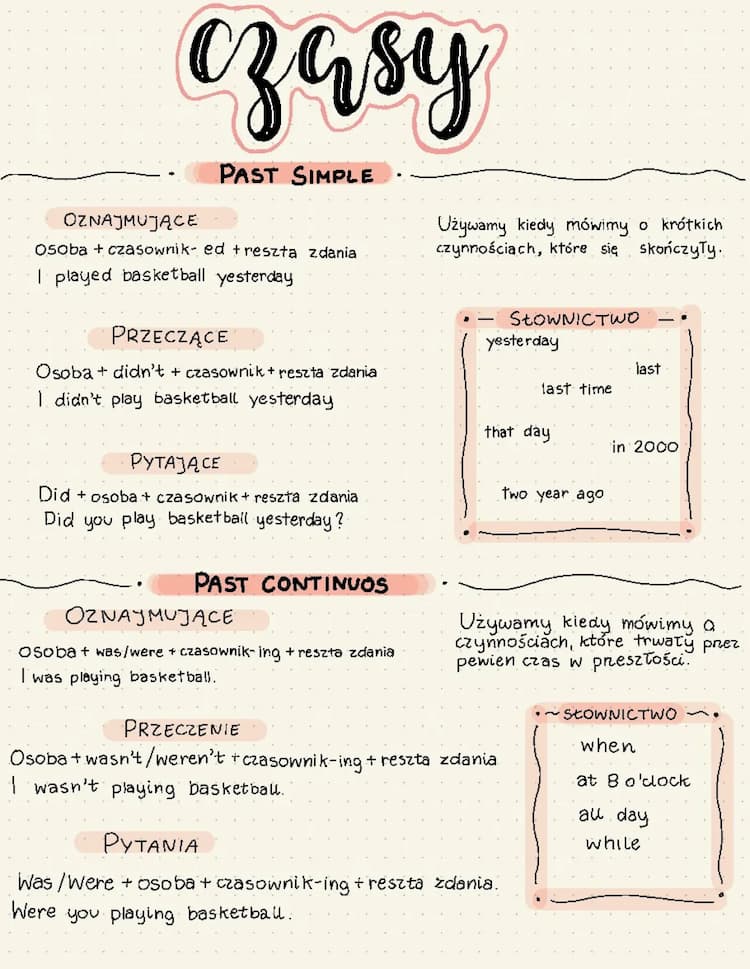 czasy
PAST SIMPLE
OZNAJMUJĄCE
Osoba + czasownik- ed + reszta zdania
I played basketball yesterday
Używamy kiedy mówimy o krótkich
czynnościach, które się skończyły.
PRZECZĄCE
Osoba + didn't + czasownik + reszta zdania
I didn't play basketball yesterday
PYTAJĄCE
Did + osoba + czasownik + reszta zdania
Did you play basketball yesterday?
SŁOWNICTWO
yesterday
last
last time
that day
in 2000
two year ago
PAST CONTINUOS
OZNAJMUJĄCE
Osoba + was/were + czasownik-ing + reszta zdania
I was playing basketball.
Używamy kiedy mówimy o
czynnościach, które trwały przez
pewien czas w przeszłości.
PRZECZENIE
Osoba + wasn't/weren't + czasownik-ing + reszta zdania
I wasn't playing basketball.
PYTANIA
Was/Were + osoba + czasownik-ing + reszta zdania.
Were you playing basketball.
SŁOWNICTWO
when
at 8 o'clock
all day
while